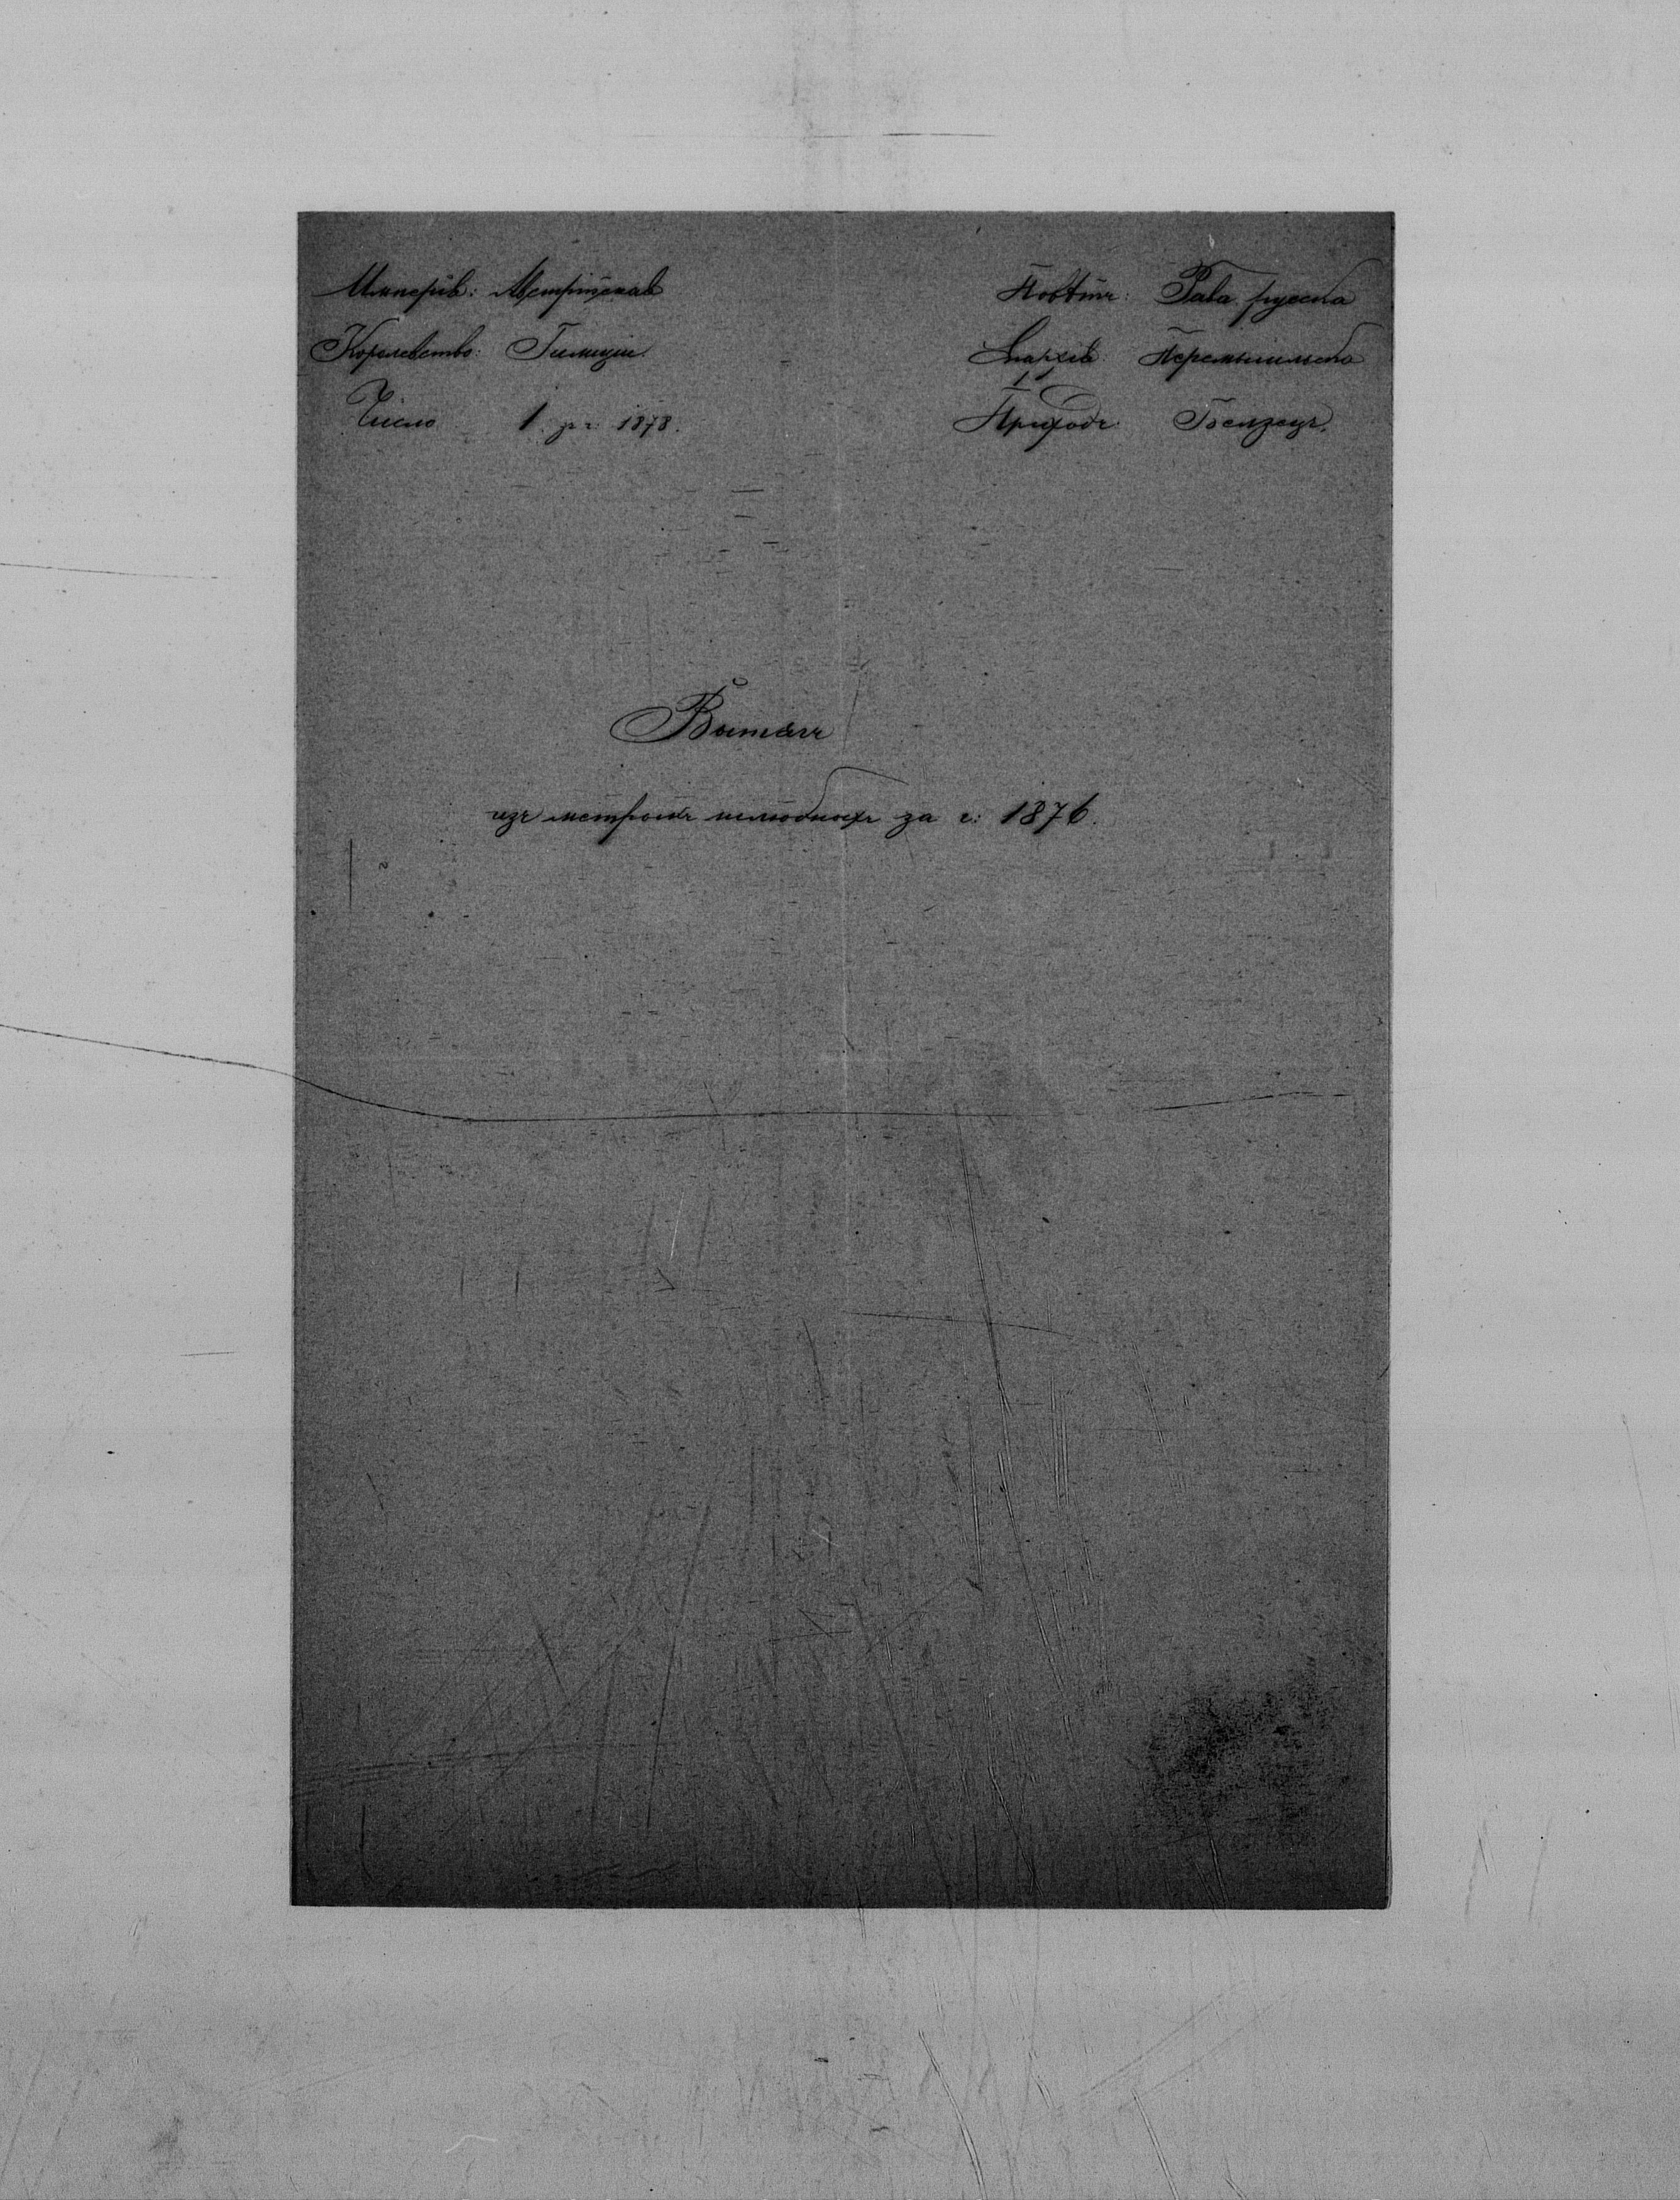 Имперія: Австрійская
Повѣтъ: Рава руска
Королевство: Галиція
Епархія: Перемышльска
Число 1 з г: 1878.
Приходъ: Белзець.
Вытягъ
изъ метрыкъ шлюбныхъ за г: 1876.